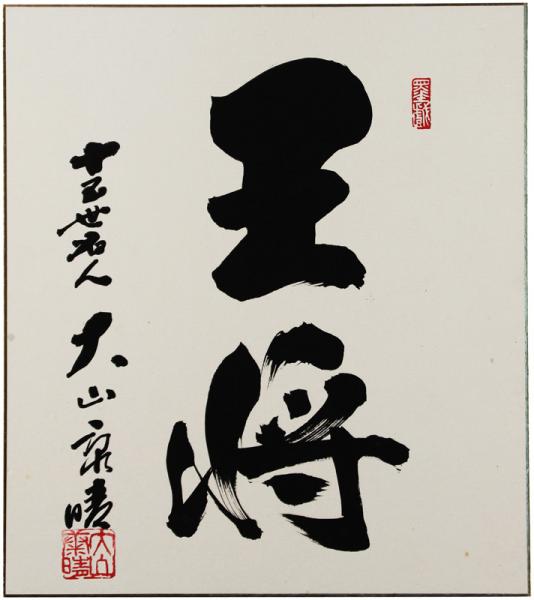 王将
十五世名人
大山康晴
大山康晴